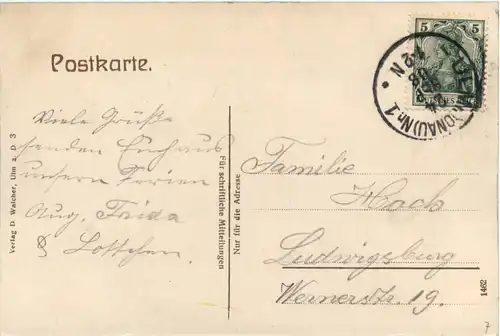 Postkarte.
5 5
ULM (DONAU) Nr. 1
Viele Grüße
senden Euch aus
unsern Ferien
Aug, Frida
& Lottchen.
Verlag D. Walcher, Ulm a. D 3
Für schriftliche Mitteilungen
Nur für die Adresse
Familie
Hoch
Ludwigsburg
Wernerstr. 19.
1462
7